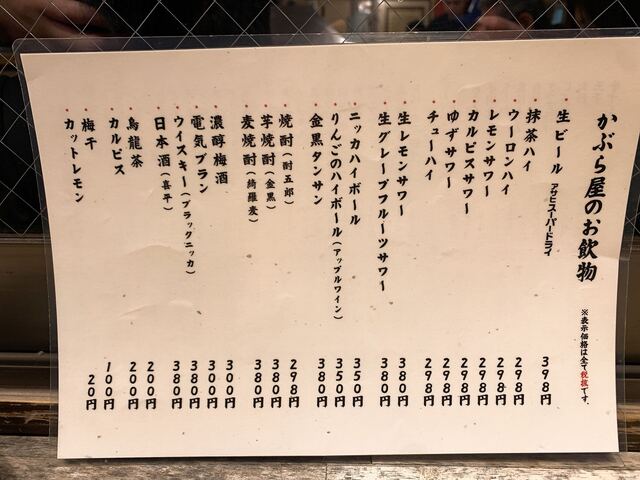 かぶら屋のお飲物
※表示価格は全て税抜です。
・生ビール アサヒスーパードライ 398円
・抹茶ハイ 298円
・ウーロンハイ 298円
・レモンサワー 298円
・カルピスサワー 298円
・ゆずサワー 298円
・チューハイ 298円
・生レモンサワー 380円
・生グレープフルーツサワー 380円
・ニッカハイボール 350円
・りんごのハイボール(アップルワイン) 350円
・金黒タンサン 380円
・焼酎(酎五郎) 298円
・芋焼酎(金黒) 380円
・麦焼酎(綺羅麦) 380円
・濃醇梅酒 300円
・電気ブラン 300円
・ウイスキー(ブラックニッカ) 380円
・日本酒(喜平) 380円
・烏龍茶 200円
・カルピス 200円
・梅干 100円
・カットレモン 20円